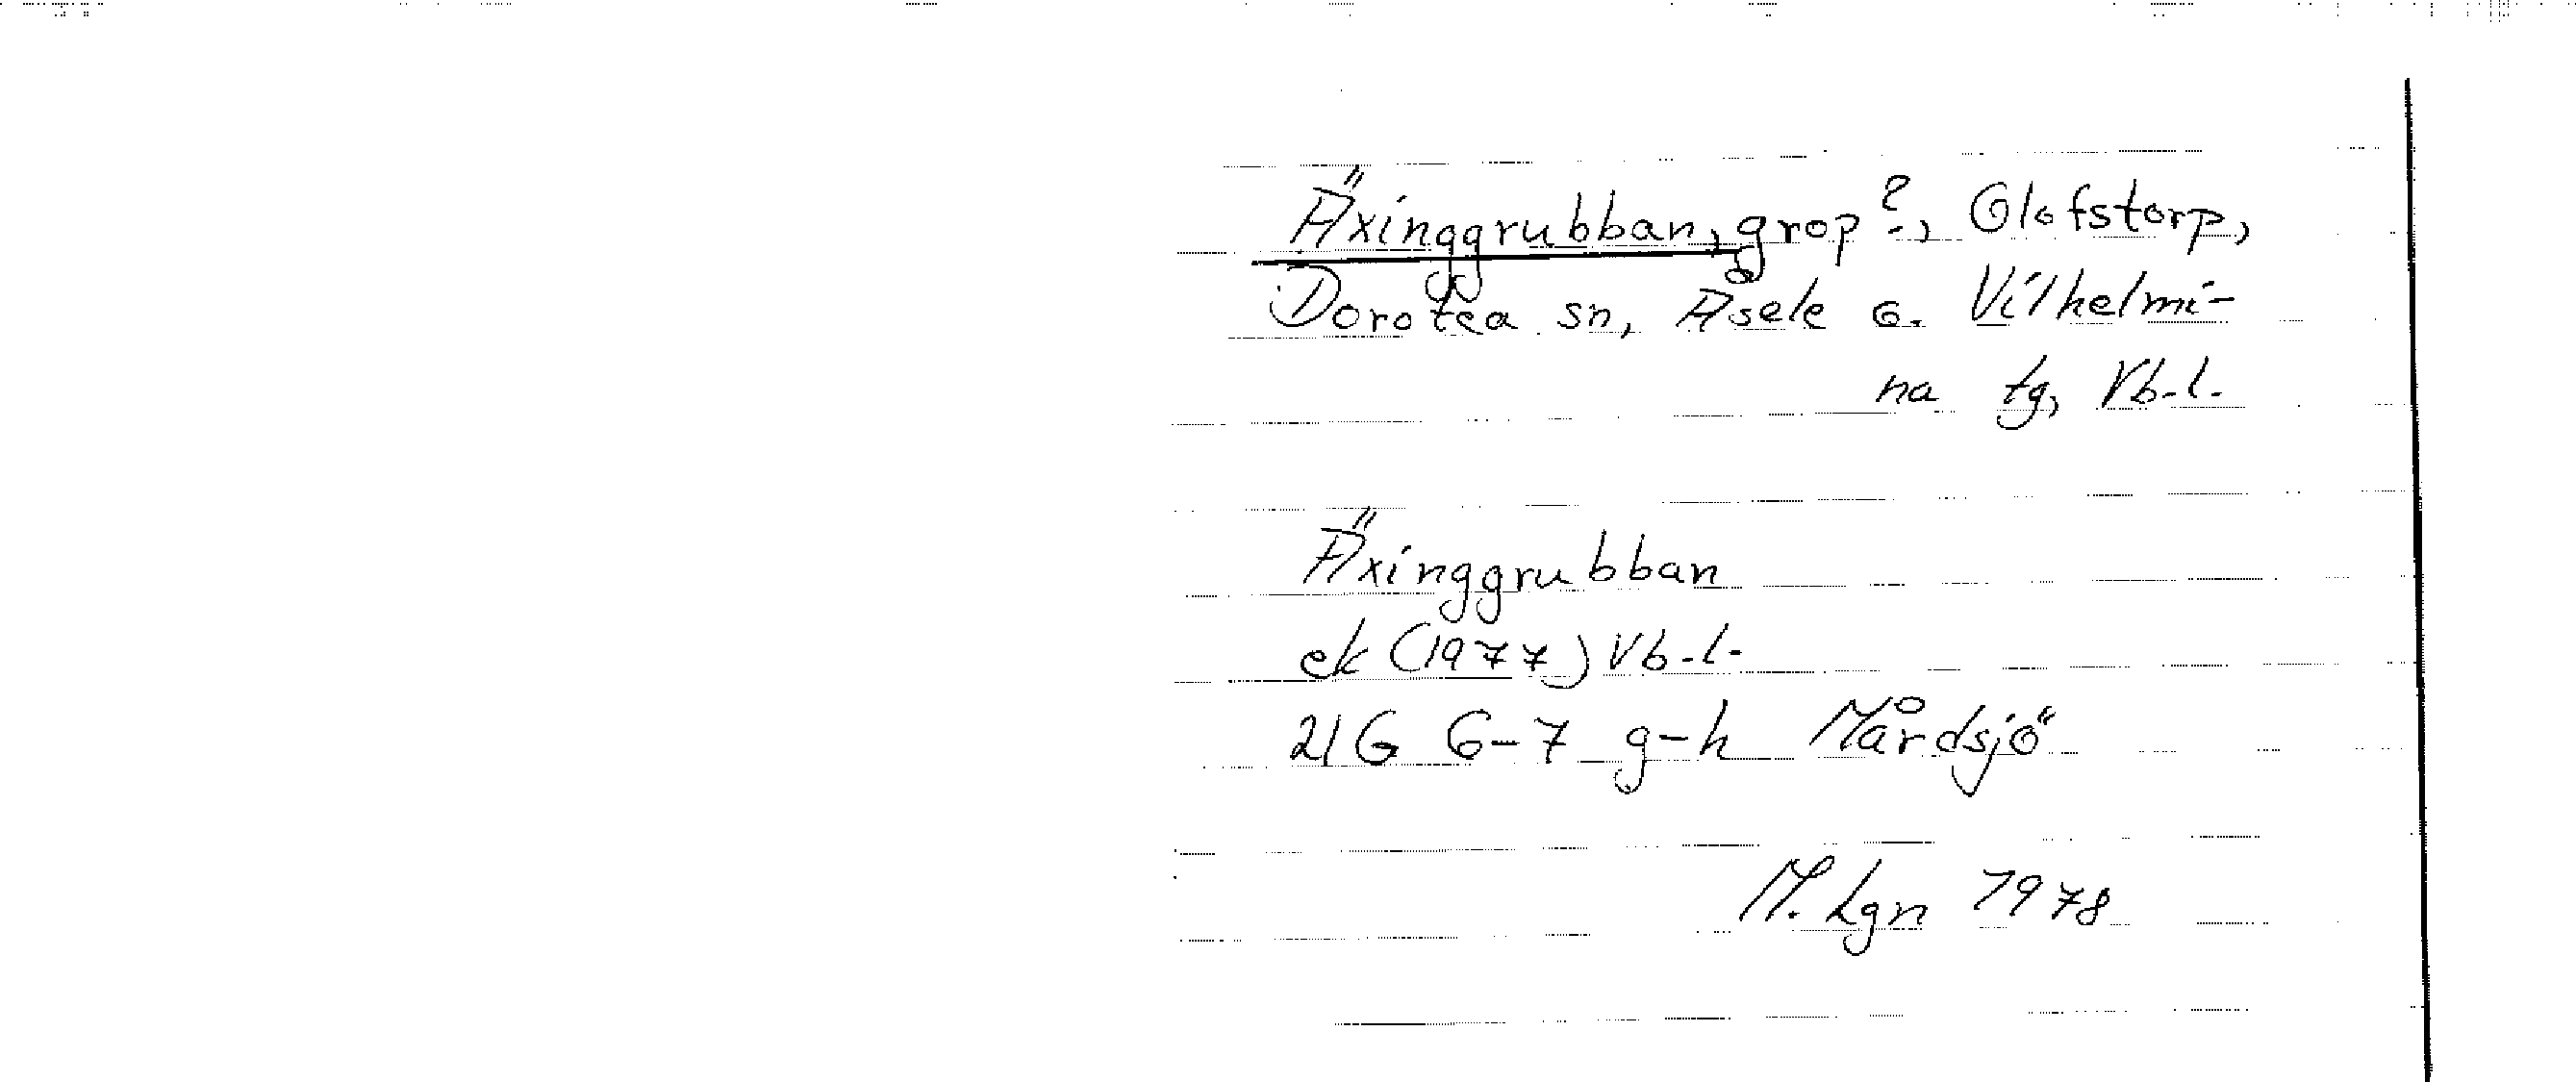 Äxinggrubban, grop?, Olofstorp,
Dorotea sn, Åsele o. Vilhelmi-
na tg, Vb.l.
Äxinggrubban
ek (1977) Vb.l.
21G 6-7 g-h Mårdsjö
M. Lgn 1978